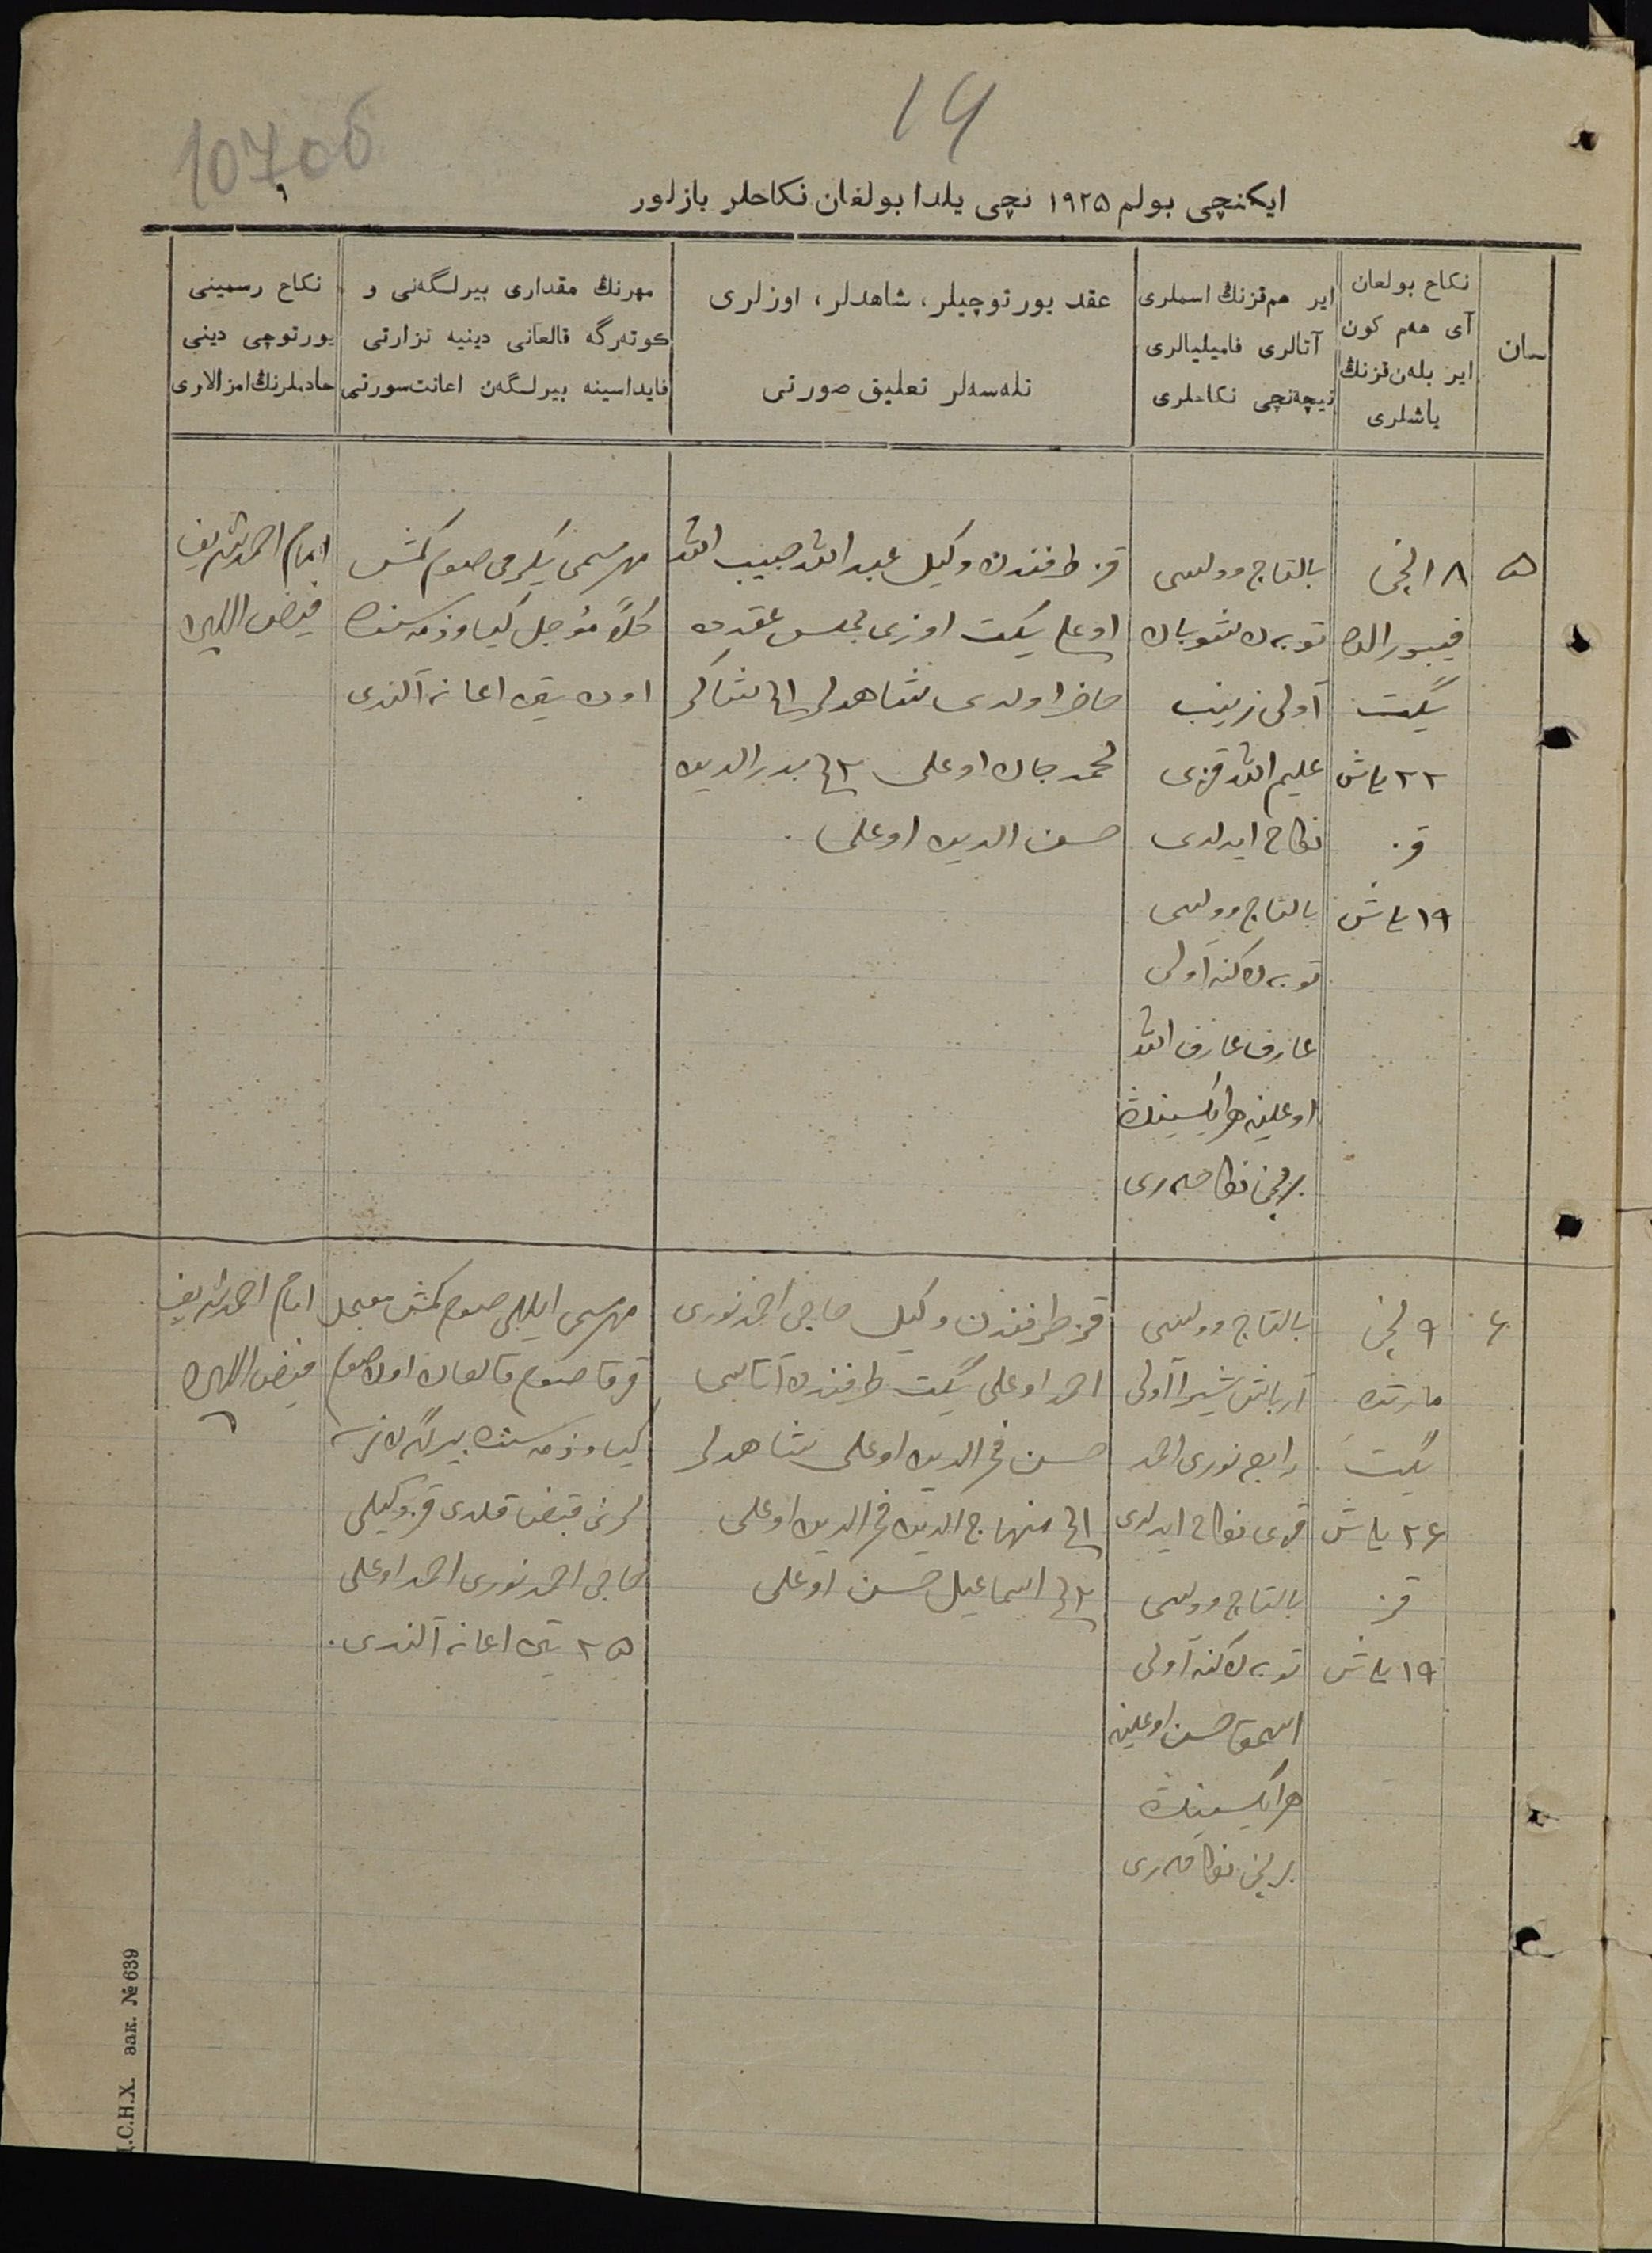 14
107об
٩
ايكنچی بولم ١٩٢٥ نچی يلدا بولغان نكاحلر يازلور
سان
نكاح بولغان
آی هەم كون
اير بلەن قزنڭ
ياشلری
اير هم قزنڭ اسملری
آتالری فاميليالری
نيچەنچی نكاحلری
عقد يورتوچيلر، شاهدلر، اوزلری
تلەسەلر تعليق صورتی
مهرنڭ مقداری بيرلگەنی و
كوتەرگە قالغانی دينيه نزارتی
فايداسينه بيرلگەن اعانت سورتی
نكاح رسمينی
يورتوچی دينی
خادملرنڭ امزالاری
٥
١٨ انچی
فيبورالده
يگت
٢٢ ياش
قز
١٩ ياش
بالتاج وولسی
توبەن شوبان
آولی زينب
عليم الله قزی
نكاح ايدلدی
بالتاج وولسی
توبەن كنه آولی
عارف عارف الله
اوغلينه هر ايكسينڭ
برنچی نكاحلەری
قز طرفندن وكيل عبد الله حبيب الله
اوغلی يگت اوزی مجلس عقدده
حاضر اولدی شاهدلر ١نچی شاكر
محمد جان اوغلی ٢نچی بدر الدين
حسن الدين اوغلی.
مهر مسمی يگرمی صوم كمش
كلاً مؤجل كياو ذمه سنده
اون تين اعانه آلندی
امام احمد شريف
فيض اللهين
٦
٩ نچی
مارتده
يگت
٢٦ ياش
قز
١٩ ياش
بالتاج وولسی
آرباش شيرا آولی
رابع نوری احمد
قزی نكاح ايدلدی
بالتاج وولسی
توبەن كنه آولی
اسحق حسن اوغلينه
هر ايكسينڭ
برنچی نكاحلەری
قز طرفندن وكيل حاجی احمد نوری
احمد اوغلی يگت طرفندن آتاسی
حسن فخر الدين اوغلی شاهدلر
١نچی منهاج الدين فخر الدين اوغلی
٢نچی اسماعيل حسن اوغلی
مهر مسمی ايللی صوم كمش معجل
قرقا صوم قالغان اون صوم
كياو ذمه سنده بيرلگەن نرسه
لرنی قبض قلدی قز وكيلی
حاجی احمد نوری احمد اوغلی
٢٥ تين اعانه آلندی.
امام احمد شريف
فيض اللهين
Ц.С.Н.Х. зак. № 639